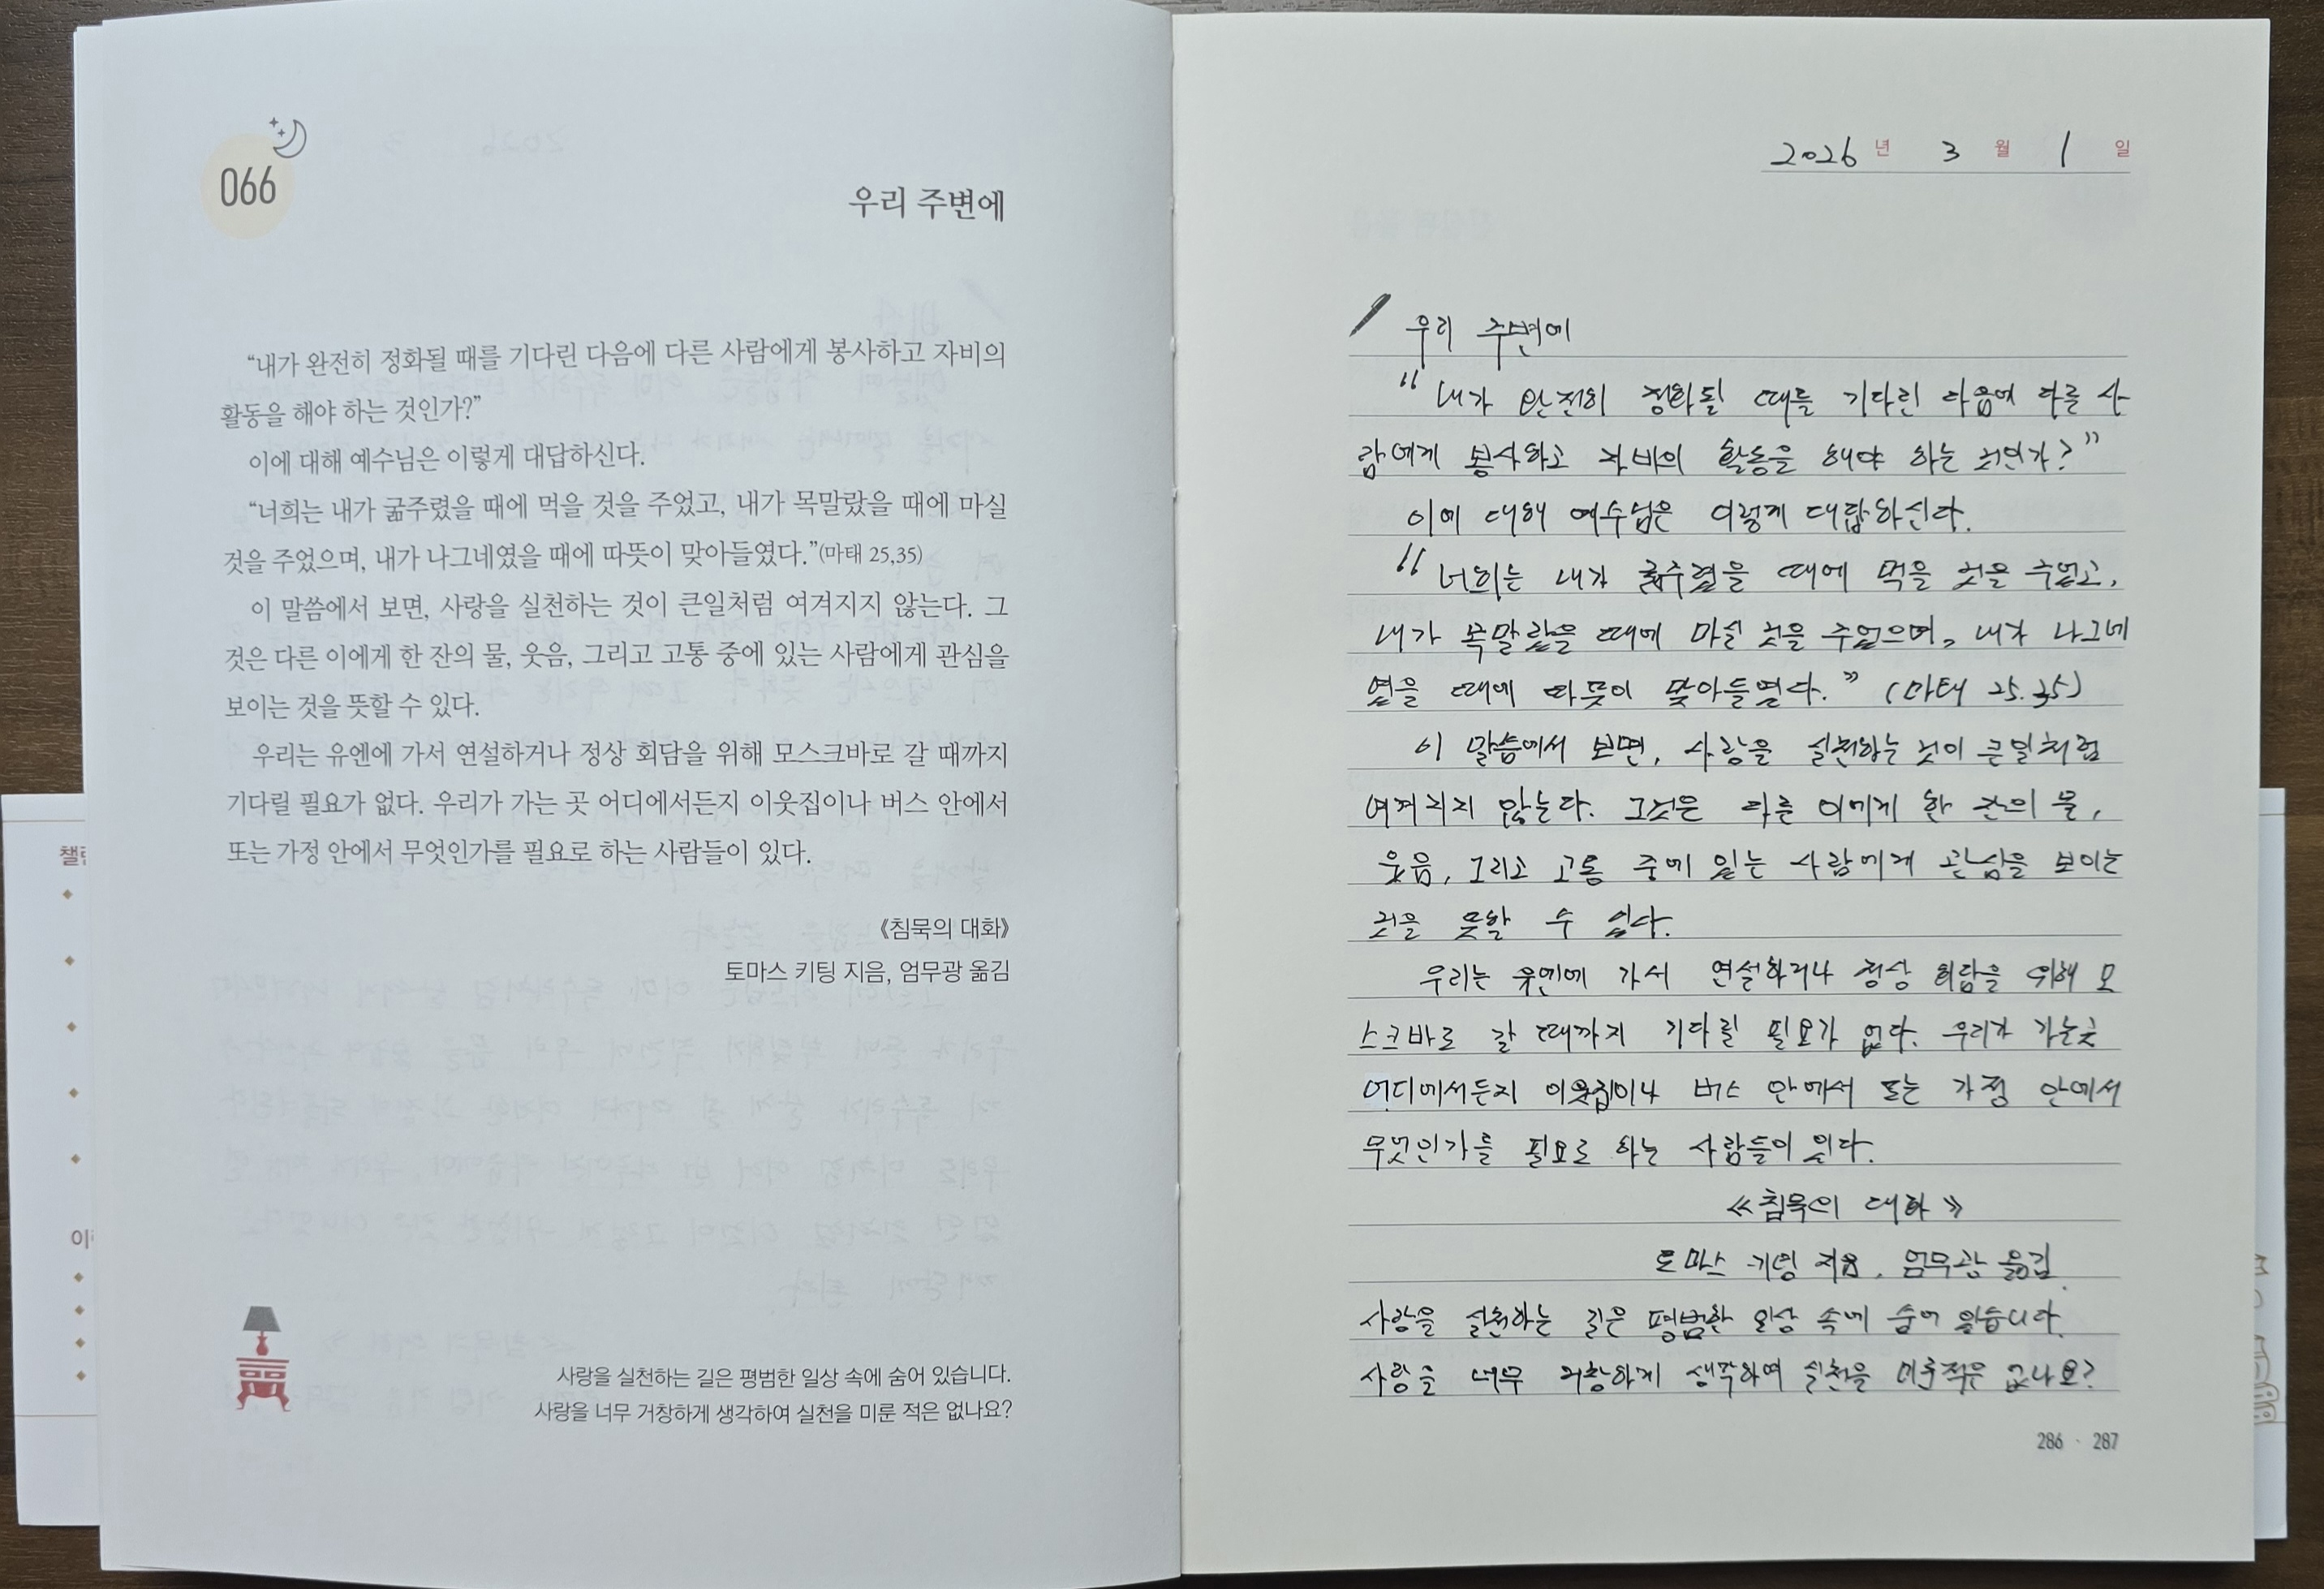 066
우리 주변에
“내가 완전히 정화될 때를 기다린 다음에 다른 사람에게 봉사하고 자비의
활동을 해야 하는 것인가?”
이에 대해 예수님은 이렇게 대답하신다.
“너희는 내가 굶주렸을 때에 먹을 것을 주었고, 내가 목말랐을 때에 마실
것을 주었으며, 내가 나그네였을 때에 따뜻이 맞아들였다.”(마태 25,35)
이 말씀에서 보면, 사랑을 실천하는 것이 큰일처럼 여겨지지 않는다. 그
것은 다른 이에게 한 잔의 물, 웃음, 그리고 고통 중에 있는 사람에게 관심을
보이는 것을 뜻할 수 있다.
우리는 유엔에 가서 연설하거나 정상 회담을 위해 모스크바로 갈 때까지
기다릴 필요가 없다. 우리가 가는 곳 어디에서든지 이웃집이나 버스 안에서
또는 가정 안에서 무엇인가를 필요로 하는 사람들이 있다.
《침묵의 대화》
토마스 키팅 지음, 엄무광 옮김
사랑을 실천하는 길은 평범한 일상 속에 숨어 있습니다.
사랑을 너무 거창하게 생각하여 실천을 미룬 적은 없나요?
2026 년 3 월 1 일
우리 주변에
“내가 완전히 정화될 때를 기다린 다음에 다른 사
람에게 봉사하고 자비의 활동을 해야 하는 것인가?”
이에 대해 예수님은 이렇게 대답하신다.
“너희는 내가 굶주렸을 때에 먹을 것을 주었고,
내가 목말랐을 때에 마실 것을 주었으며, 내가 나그네
였을 때에 따뜻이 맞아들였다.” (마태 25.35)
이 말씀에서 보면, 사랑을 실천하는 것이 큰일처럼
여겨지지 않는다. 그것은 다른 이에게 한 잔의 물,
웃음, 그리고 고통 중에 있는 사람에게 관심을 보이는
것을 뜻할 수 있다.
우리는 유엔에 가서 연설하거나 정상 회담을 위해 모
스크바로 갈 때까지 기다릴 필요가 없다. 우리가 가는곳
어디에서든지 이웃집이나 버스 안에서 또는 가정 안에서
무엇인가를 필요로 하는 사람들이 있다.
《침묵의 대화》
토마스 키팅 지음, 엄무광 옮김.
사랑을 실천하는 길은 평범한 일상 속에 숨어 있습니다.
사랑을 너무 거창하게 생각하여 실천을 미룬적은 없나요?
286 · 287